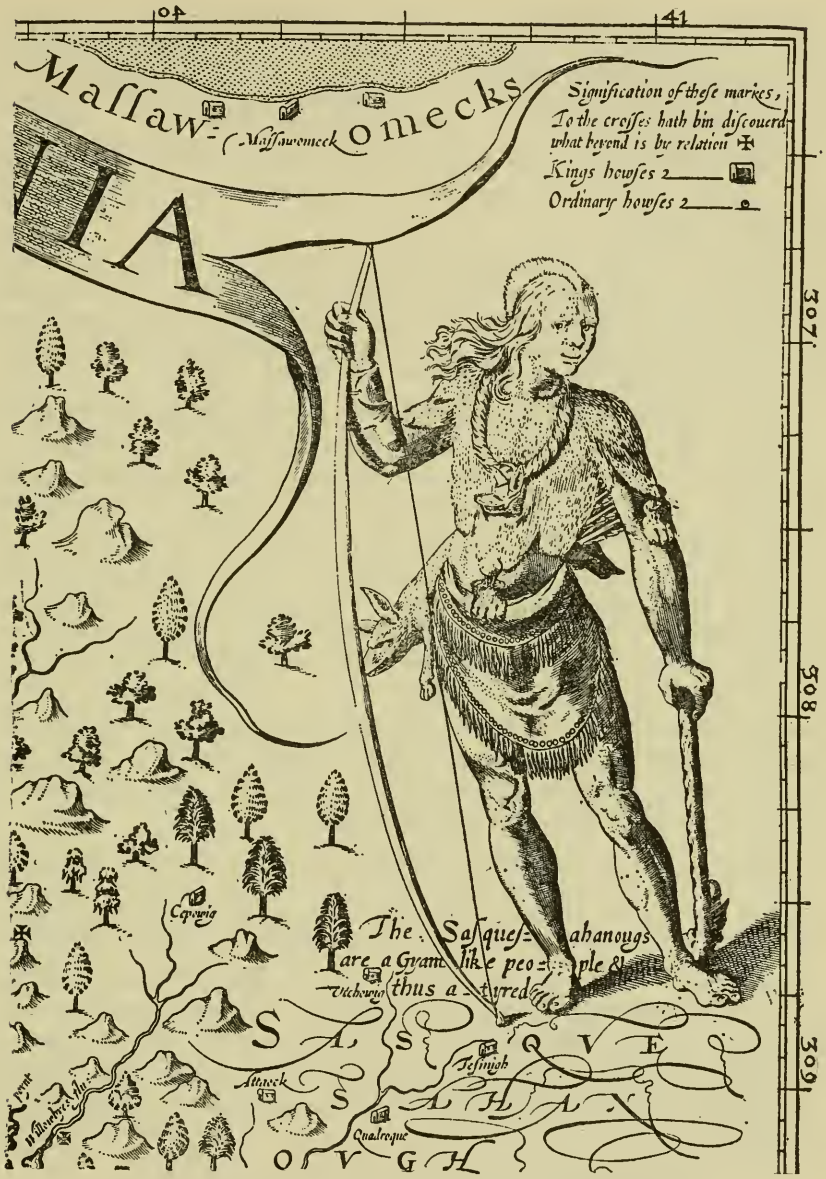 40
41
Maſſaw=
omecks
Maſſawomeck
Signification of theſe markes,
To the croſſes hath bin diſcouerd
what beyond is by relation ✠
Kings howſes
Ordinary howſes
NIA
307
308
309
Cepowig
The Saſqueſ= ahanougs
are a Gyant like peo= ple &
thus a=tyred
Vtchowig
SASQVE
SAHAN
OVGH
Teſinigh
Attaock
Quadroque
Willowbyes flu: